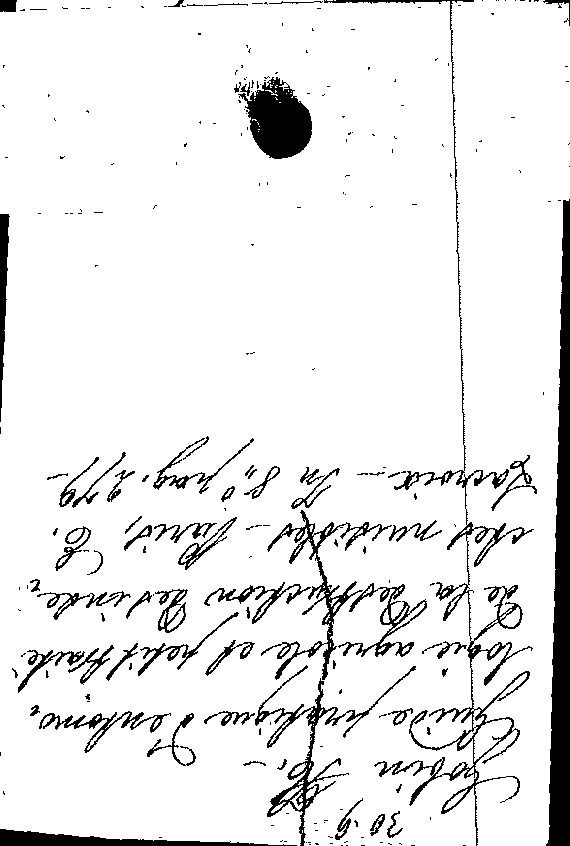 30.9
Gobin H. —
Guide pratique d'entomo-
logie agricole et petit traité
de la destruction des insec-
tes nuisibles — Paris, E.
Lacroix — In 8,,° pag. 279 —